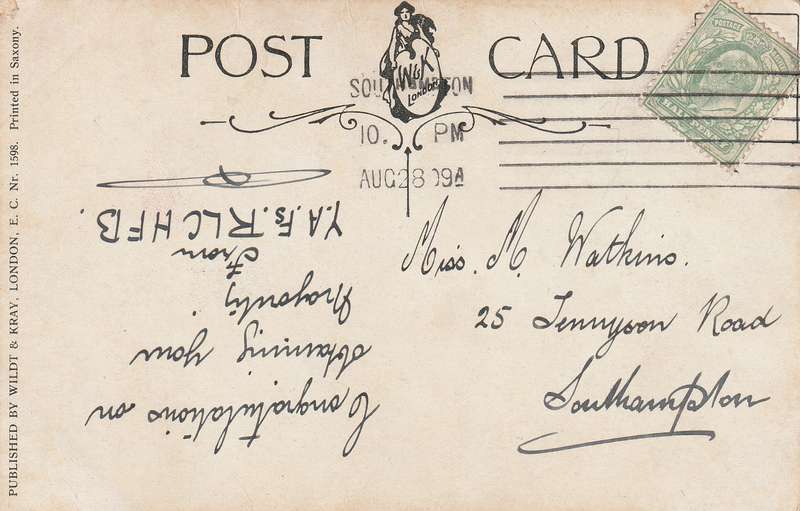 POST CARD
W&K
LONDON
SOUTHAMPTON
10. PM
AUG 28 09A
POSTAGE
Miss. M. Watkins.
25 Tennyson Road
Southampton
Congratulations on
obtaining your
Majority
From
Y.A.Fs. R L C H F B.
PUBLISHED BY WILDT & KRAY, LONDON, E. C. Nr. 1598. Printed in Saxony.